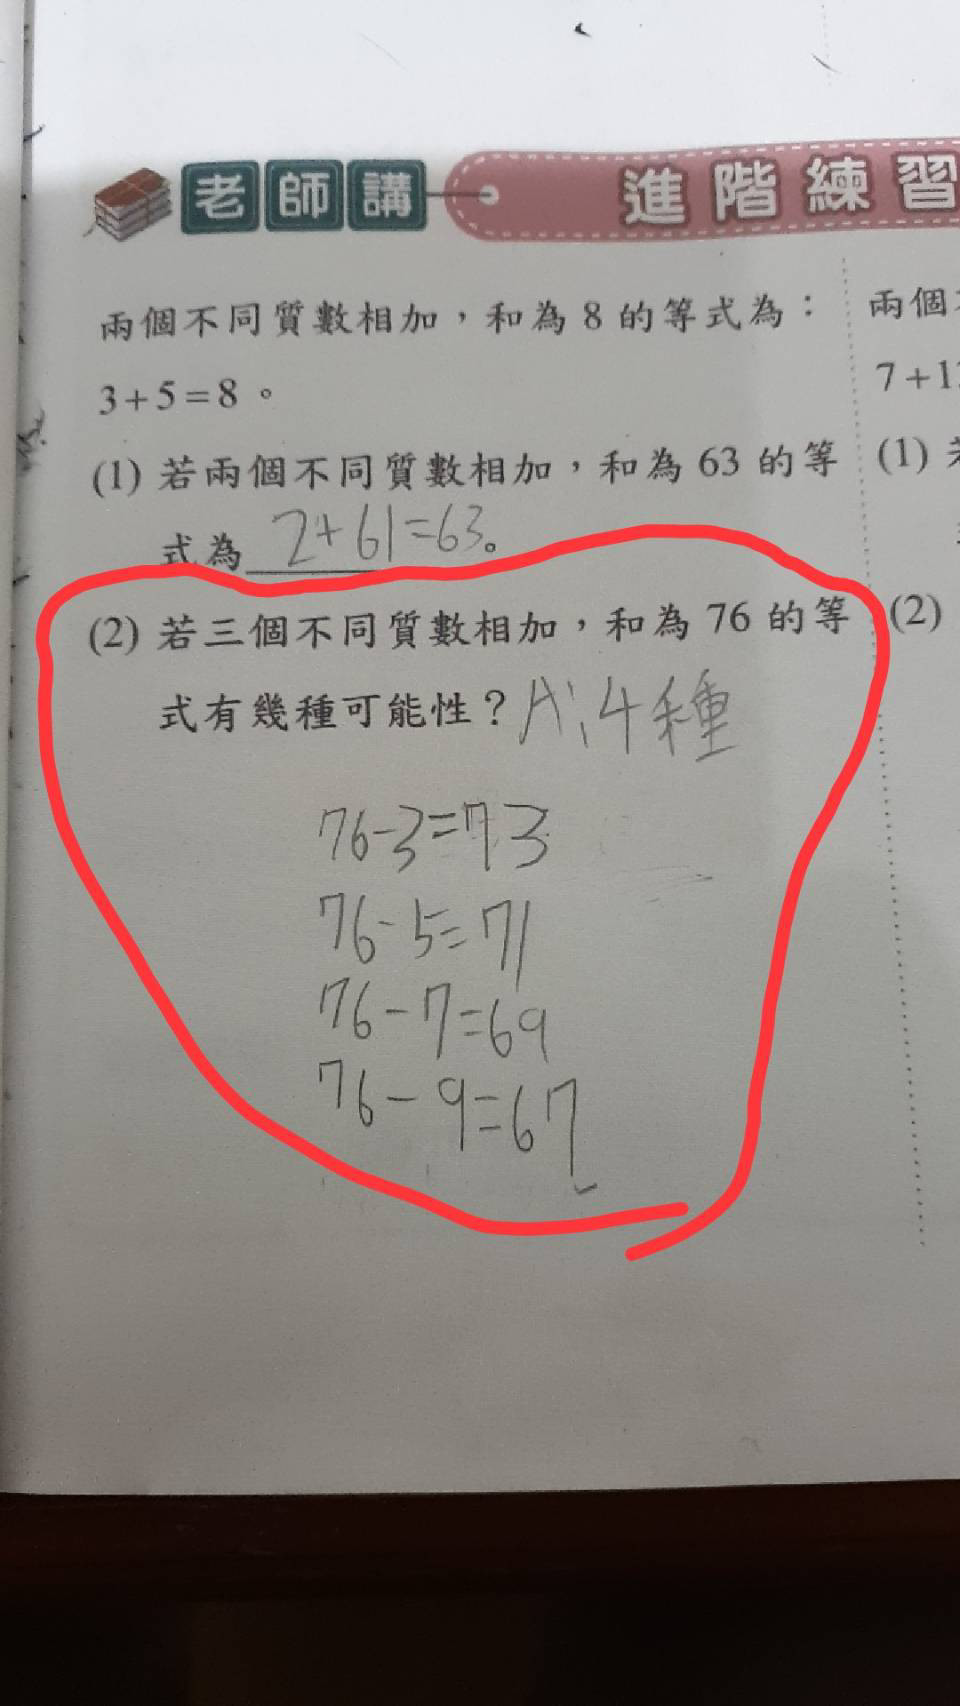 老師講 進階練習
兩個不同質數相加，和為 8 的等式為：
3+5=8。
(1) 若兩個不同質數相加，和為 63 的等
式為 2+61=63。
(2) 若三個不同質數相加，和為 76 的等
式有幾種可能性？A:4種
76-3=73
76-5=71
76-7=69
76-9=67
兩個
7+1
(1)
(2)